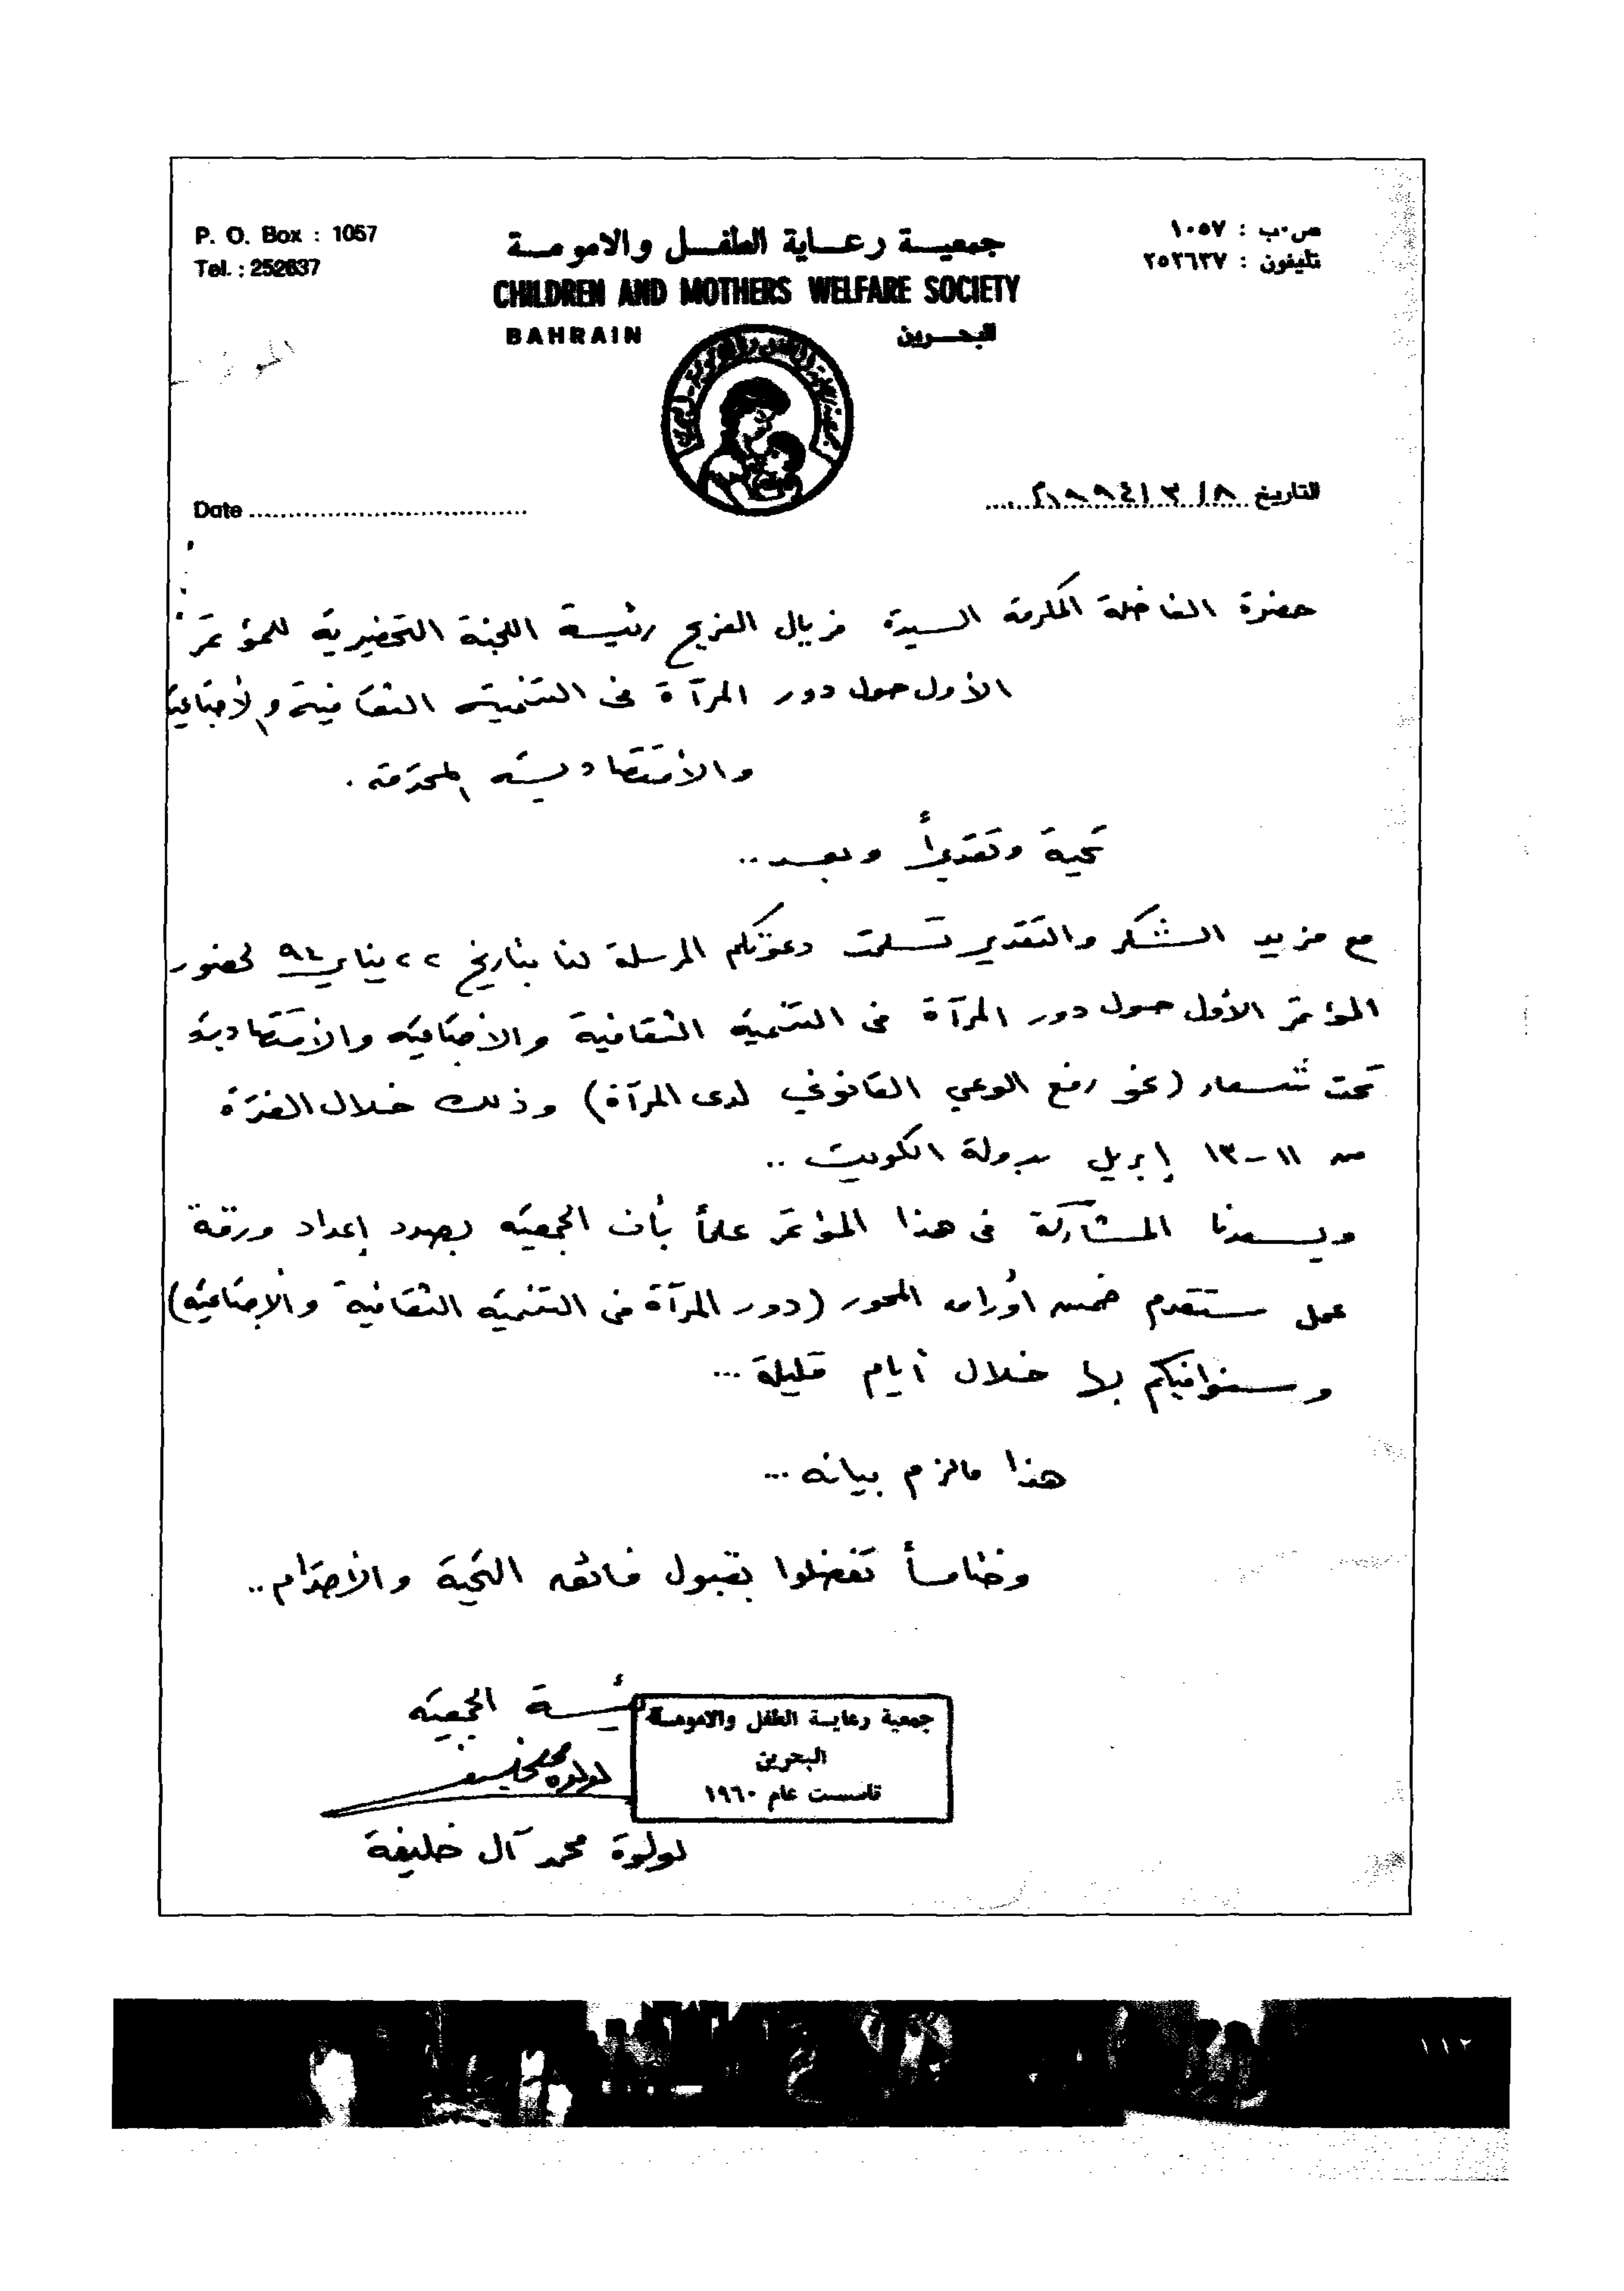 P. O. Box : 1057
Tel. : 252637
جمعيــة رعــاية الطفــل والامومــة
CHILDREN AND MOTHERS WELFARE SOCIETY
BAHRAIN
البحــرين
ص.ب : ١٠٥٧
تليفون : ٢٥٢٦٣٧
Date
التاريخ ٨/ ٣ /١٩٩٤م
حضرة الفاضلة المكرمة السيدة فريال الفريح رئيسة اللجنة التحضيرية للمؤتمر
الأول حول دور المرآة في التنمية الثقافية والأجتماعية
والأقتصادية المحترمة .
تحية وتقديراً وبعد ..
مع مزيد الشكر والتقدير تسلمت دعوتكم المرسلة لنا بتاريخ ٢٢ يناير ٩٤ لحضور
المؤتمر الأول حول دور المرآة في التنمية الثقافية والأجتماعية والأقتصادية
تحت شعار (نحو رفع الوعي القانوني لدى المرآة) وذلك خلال الفترة
من ١١-١٣ إبريل بدولة الكويت ..
ويسعدنا المشاركة في هذا المؤتمر علماً بأن الجمعية بصدد إعداد ورقة
عمل ستقدم ضمن أوراق المحور (دور المرآة في التنمية الثقافية والإجتماعية)
وسنوافيكم بها خلال أيام قليلة ...
هذا مالزم بيانه ...
وختاماً تفضلوا بقبول فائقه التحية والأحترام ..
رئيسة الجمعية
جمعية رعاية الطفل والامومة
البحرين
تاسست عام ١٩٦٠
لولوة محمد آل خليفة
١١٢